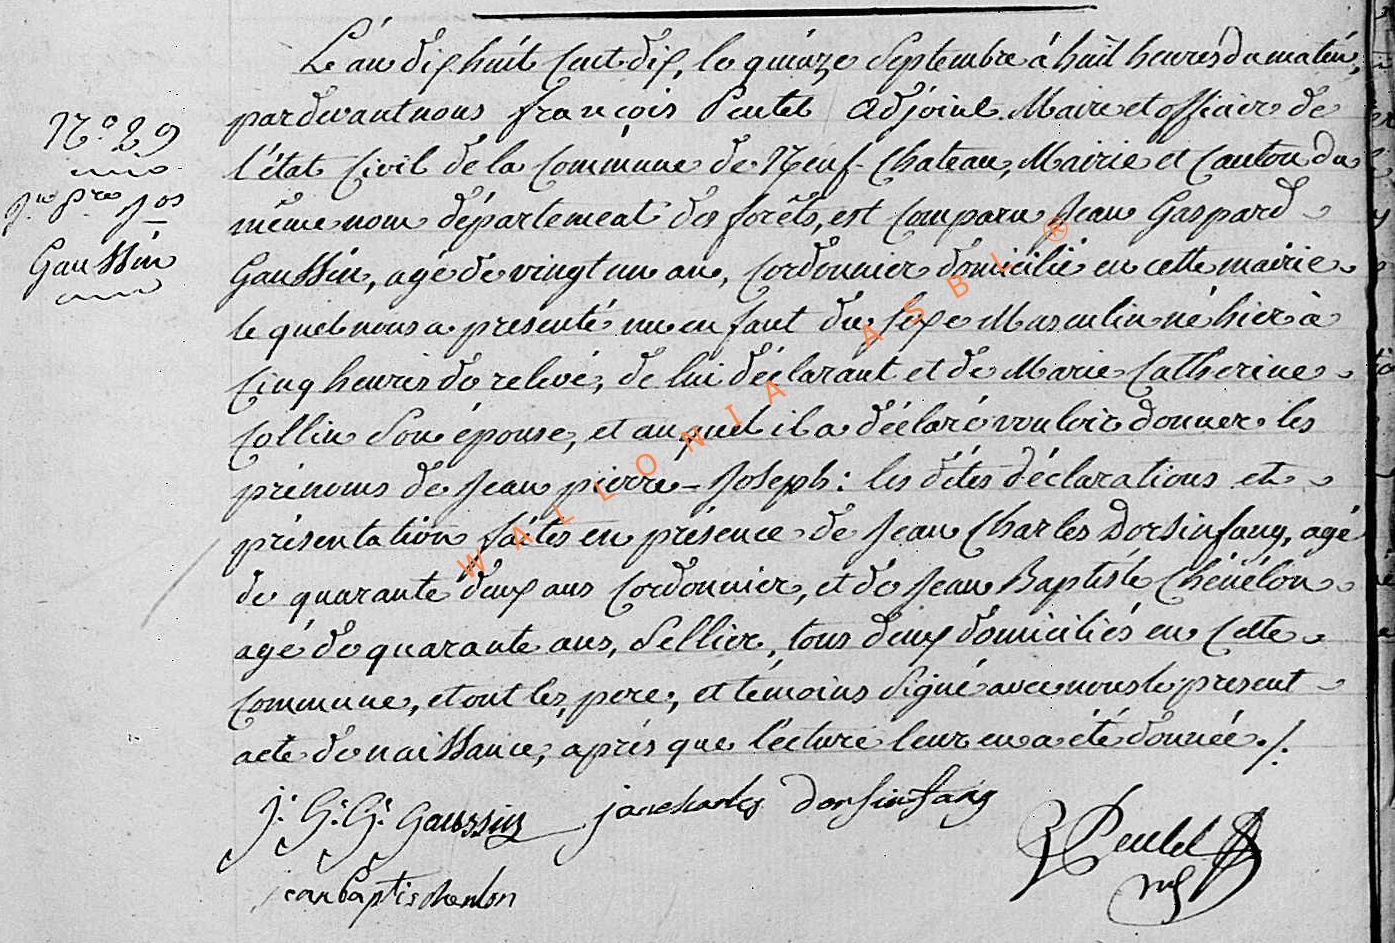 L'an dix huit cent dix, le quinze Septembre à huit heures du matin,
pardevant nous françois Peutel adjoint Maire et officier de
l'état Civil de la Commune de Neuf-Chateau, Mairie et Canton du
même nom département des forêts, est comparu Jean Gaspard
Gaussin, agé de vingt un an, Cordonnier domicilié en cette mairie
le quel nous a presenté un enfant du sexe Masculin né hier à
Cinq heures de relevé, de lui déclarant et de Marie Catherine
Collin Son épouse, et au quel il a déclaré vouloir donner les
prénoms de Jean pierre-Joseph: les dites déclarations et
présentation faites en présence de Jean Charles Dorsinfang, agé
de quarante deux ans Cordonnier, et de Jean Baptiste Chénélon
agé de quarante ans, Sellier, tous deux domiciliés en Cette
Commune, et ont les, pere, et témoins Signé avec nous le présent
acte de naissance, après que lecture leur en a été donnée./.
N° 29
jn pre jos
Gaussin
J: G: G: Gaussin
jancharles dorsinfang
Peutel
jean baptis chenlon
WALLONIA ASBL ®